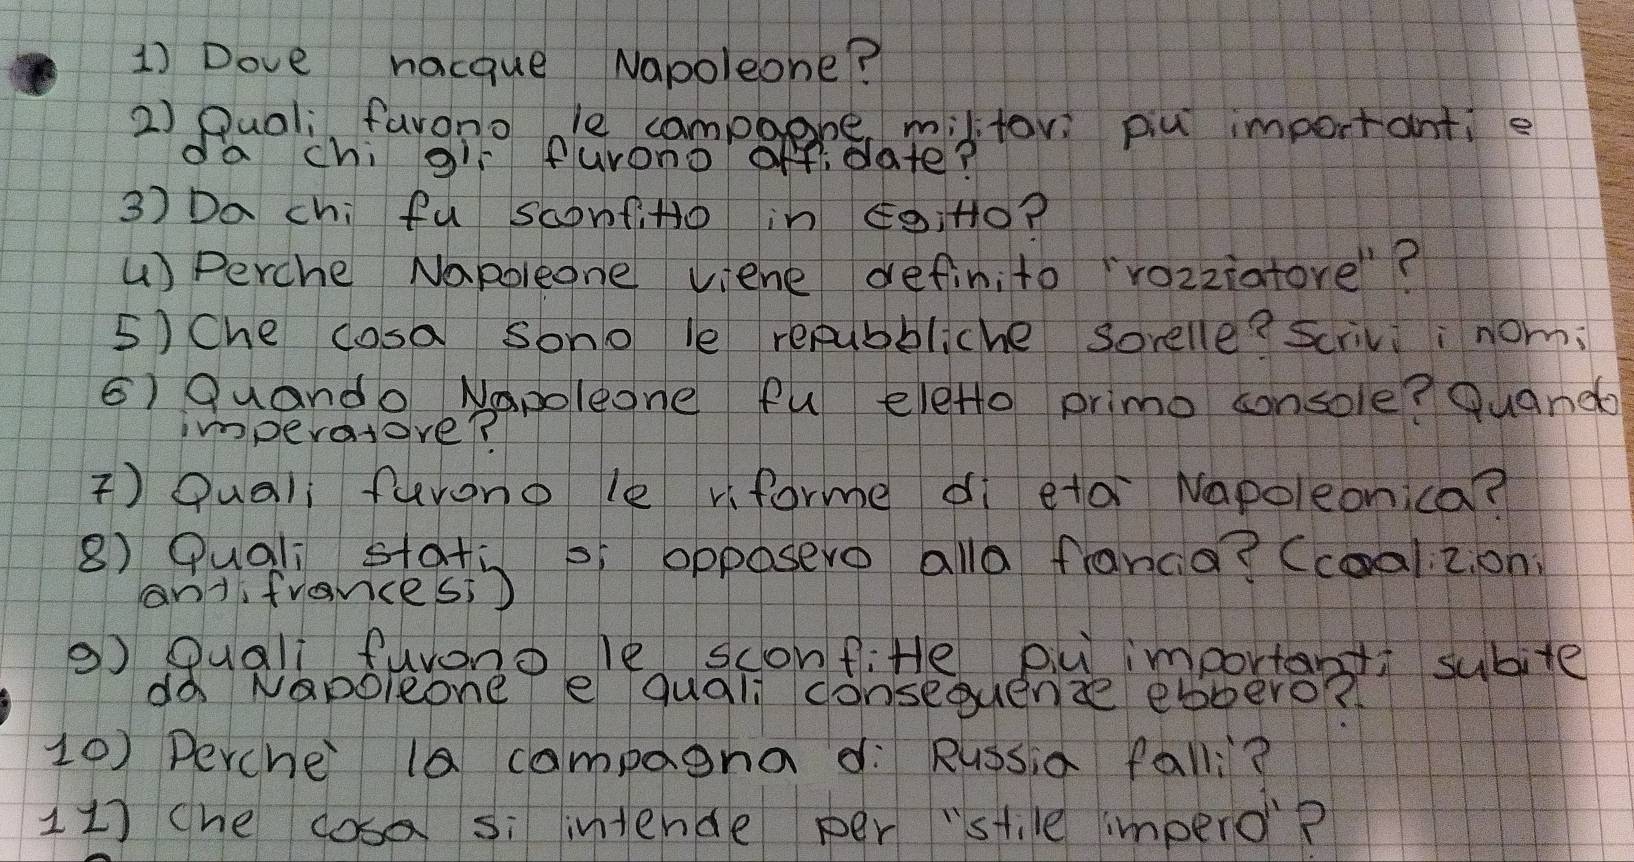 1) Dove nacque Napoleone?
2) Quali furono le campagne militari più importanti e
da chi gli furono affidate?
3) Da chi fu sconfitto in Egitto?
4) Perche Napoleone viene definito "razziatore"?
5) Che cosa sono le repubbliche sorelle? Scrivi i nomi
6) Quando Napoleone fu eletto primo console? Quando
imperatore?
7) Quali furono le riforme di età Napoleonica?
8) Quali stati si opposero alla francia? (coalizioni
antifrancesi)
9) Quali furono le sconfitte più importanti subite
da Napoleone e quali conseguenze ebbero?
10) Perchè la campagna di Russia fallì?
11) Che cosa si intende per "stile impero"?